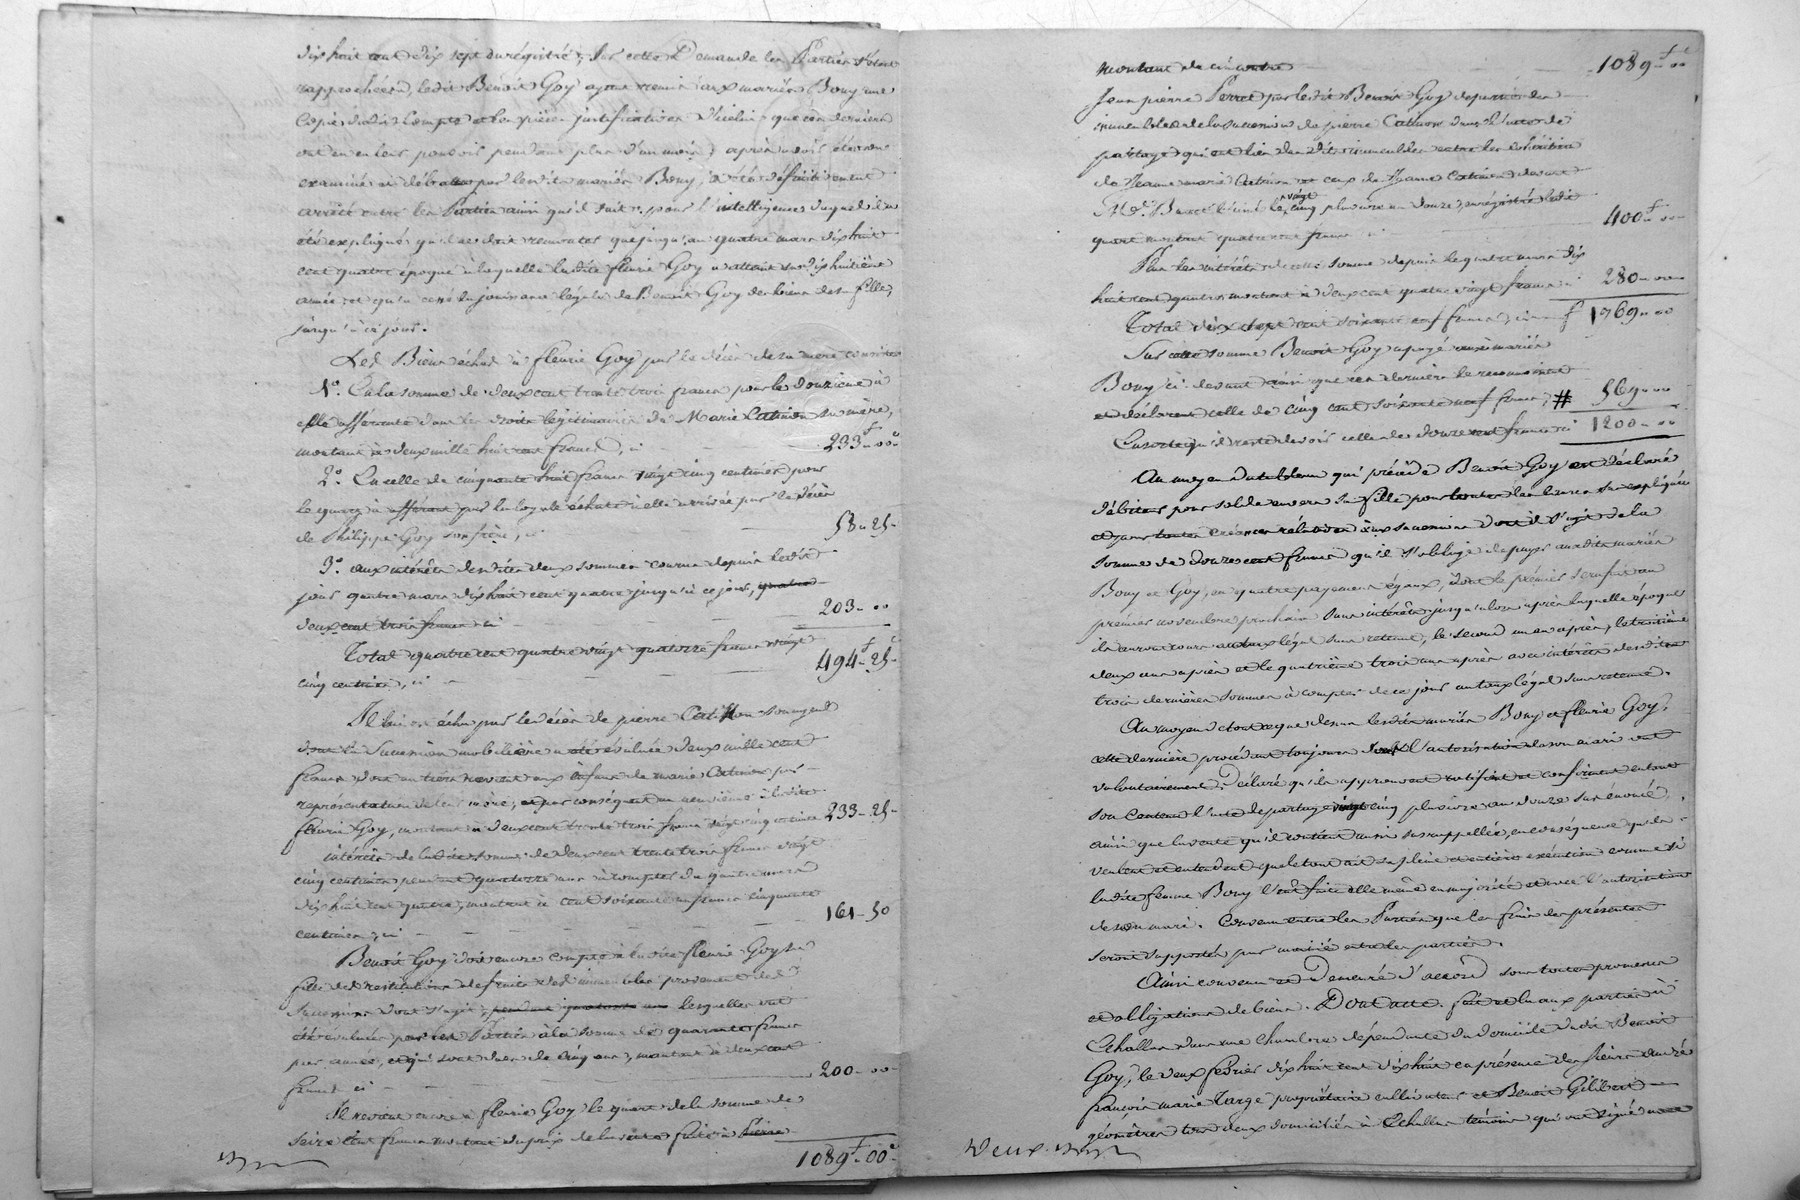 dix huit cent dix sept enregistré; sur cette Demande les Parties s'étant
rapprochées, ledit Benoît Goy ayant remis aux mariés Bony une
copie dudit compte et les pièces justificatives d'icelui que ces derniers
ont eu en leur pouvoir pendant plus d'un mois; après avoir été
examiné et débattu par lesdits mariés Bony, a été définitivement
arrêté entre les Parties ainsi qu'il suit; pour l'intelligence duquel il a
été expliqué qu'il ne doit remonter que jusqu'au quatre mars dix huit
cent quatre époque à laquelle ladite fleurie Goy a atteint sa dix huitième
année et qu'a cessé la jouissance légale de Benoît Goy des biens de sa fille,
jusqu'à ce jour.
Les Biens échus à fleurie Goy par le décès de sa mère consistent
1.° En la somme de deux cent trente trois francs pour le douzième à
elle afférente dans les droits légitimaires de Marie Catinon sa mère,
montant à deux mille huit cent francs, ci - - 233.f 00.c
2.° En celle de cinquante huit francs vingt cinq centimes pour
le quart à afférant par la loy de échute à elle arrivée par le décès
de Philippe Goy son frère, ci - 58. 25
3.° aux intérêts desdites deux sommes courus depuis ledit
jour quatre mars dix huit cent quatre jusqu'à ce jour,
deux cent trois francs ci - 203. 00
Total quatre cent quatre vingt quatorze francs vingt
cinq centimes, ci - 494.f 25.c
Il lui est échu par le décès de pierre Catinon son ayeul
dont la succession mobiliaire a été évaluée deux mille cent
francs dont un tiers revient aux enfans de marie Catinon par
représentation de leur mère, et par conséquent un neuvième à ladite
fleurie Goy, montant à deux cent trente trois francs vingt cinq centimes 233. 25
intérêts de ladite somme de deux cent trente trois francs vingt
cinq centimes pendant quatorze ans à compter du quatre mars
dix huit cent quatre, montant à cent soixante un francs cinquante
centimes, ci - 161. 50
Benoît Goy doit encore compte à ladite fleurie Goy sa
fille des restitutions de fruits des immeubles provenant des d.
successions dont s'agit, pendant quatorze ans lesquelles ont
été évaluées par les Parties à la somme de quarante francs
par année, et qui sont dues de cinq ans, montant à deux cent
francs ci - 200. 00
Il revient encore à fleurie Goy le quart de la somme de
seize cent francs montant du prix de la vente faite à Pierre
1089.f 00.c
montant de ci contre 1089.f 00.c
Jean pierre Perret par ledit Benoît Goy de partie des
immeubles de la succession de pierre Catinon dans l'acte de
partage qui eut lieu desdits immeubles entre les héritiers
de Jeanne marie Catinon et ceux de Jeanne Catinon devant
M.e le vingt cinq pluviôse an douze, enregistré ledit
quart montant quatre cent francs ci 400.f 00
Plus les intérêts de cette somme depuis le quatre mars dix
huit cent quatre montant à deux cent quatre vingt francs ci 280. 00
Total dix sept cent soixante neuf francs, ci f 1769. 00
Sur cette somme Benoît Goy a payé aux mariés
Bony ci devant ainsi que ces derniers le reconnaissent
et déclarent celle de cinq cent soixante neuf francs, # 569. 00
Ensorte qu'il reste devoir celle de douze cent francs ci 1200. 00
Au moyen du tableau qui précède Benoît Goy est déclaré
débiteur pour solde envers sa fille pour toutes les causes sus expliquées
et pour toutes créances rélatives aux successions dont il s'agit de la
somme de douze cent francs qu'il s'oblige de payer auxdits mariés
Bony et Goy, en quatre payemens égaux, dont le premier se fera au
premier novembre prochain sans intérêts jusqu'alors après laquelle époque
ils auront cours au taux légal sans retenue, le second un an après, le troisième
deux ans après et le quatrième trois ans après avec intérêts desdites
trois dernières sommes à compter de ce jour au taux légal sans retenue.
Au moyen de tout ce que dessus lesdits mariés Bony et fleurie Goy,
cette dernière procédant toujours sous l'autorisation de son mari ont
volontairement déclaré qu'ils approuvent ratifient et confirment en tout
son contenu l'acte de partage vingt cinq pluviôse an douze sus énoncé,
ainsi que la vente qu'il contient aussi sus rappellée, en conséquence qu'ils
veulent et entendent que le tout ait sa pleine et entière exécution comme si
ladite femme Bony l'eut fait elle même en majorité et avec l'autorisation
de son mari. Convenu entre les Parties que les frais des présentes
seront supportés par moitié entre les parties.
Ainsi convenu et Demeuré d'accord sous toutes promesses
et obligations de biens. Dont acte. fait et lu aux parties à
Echallas dans une chambre dépendante du domicile dudit Benoît
Goy, le deux février dix huit cent dix huit en présence des sieurs andré
françois marie Targe propriétaire cultivateur et Benoît Gilibert
géomètre tous deux domiciliés à Echallas témoins qui ont signé avec
Deux